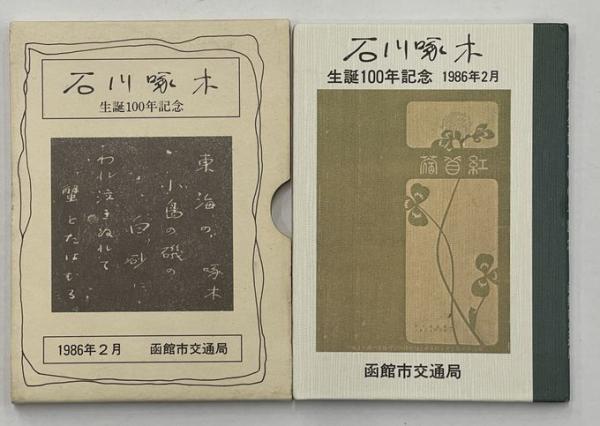 石川啄木
生誕100年記念
東海の 啄木
小島の磯の
白砂に
われ泣きぬれて
蟹とたはむる
1986年2月 函館市交通局
石川啄木
生誕100年記念 1986年2月
紅苜蓿
函館市交通局